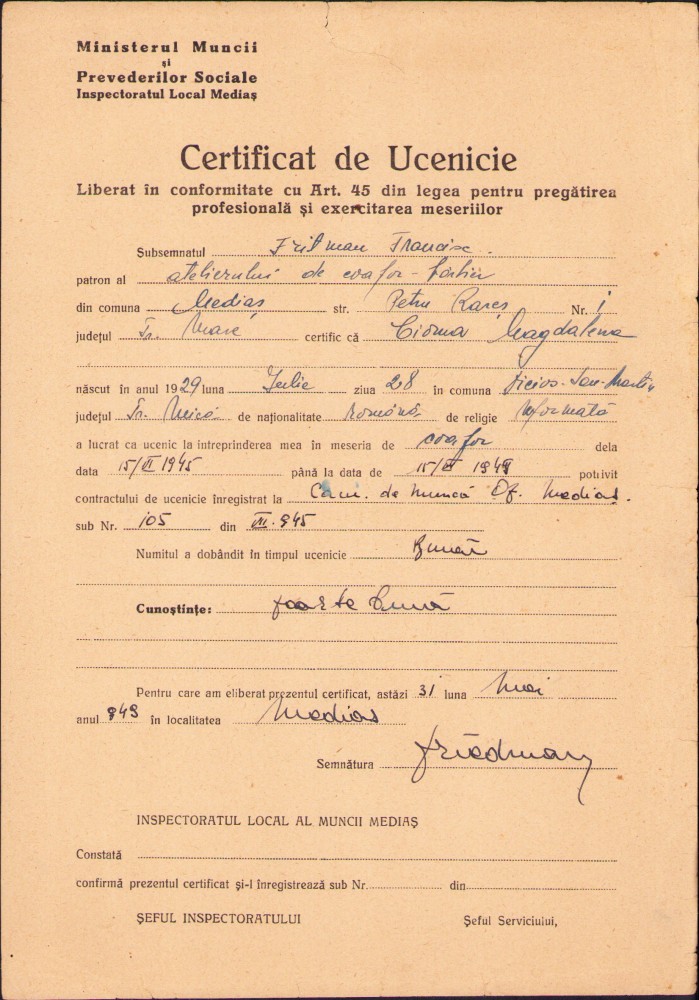 Ministerul Muncii
și
Prevederilor Sociale
Inspectoratul Local Mediaș
Certificat de Ucenicie
Liberat în conformitate cu Art. 45 din legea pentru pregătirea
profesională și exercitarea meseriilor
Subsemnatul Fritman Francisc.
patron al atelierului de coafor-
din comuna Mediaș str. Petru Rareș Nr. 1
județul Tr. Mare certific că Cioma Magdalena
născut în anul 1929 luna Iulie ziua 28 în comuna Dicios-San-Martin
județul Tr. Mică de naționalitate Română de religie reformată
a lucrat ca ucenic la întreprinderea mea în meseria de coafor dela
data 15/VI 1945 până la data de 15/ 1949 potrivit
contractului de ucenicie înregistrat la Cam. de Muncă Of. Mediaș.
sub Nr. 105 din 945
Numitul a dobândit în timpul ucenicie Bună
Cunoștințe: foarte bună
Pentru care am eliberat prezentul certificat, astăzi 31 luna Mai
anul 949 în localitatea Mediaș
Semnătura Friedman
INSPECTORATUL LOCAL AL MUNCII MEDIAȘ
Constată
confirmă prezentul certificat și-l înregistrează sub Nr. din
ȘEFUL INSPECTORATULUI Șeful Serviciului,